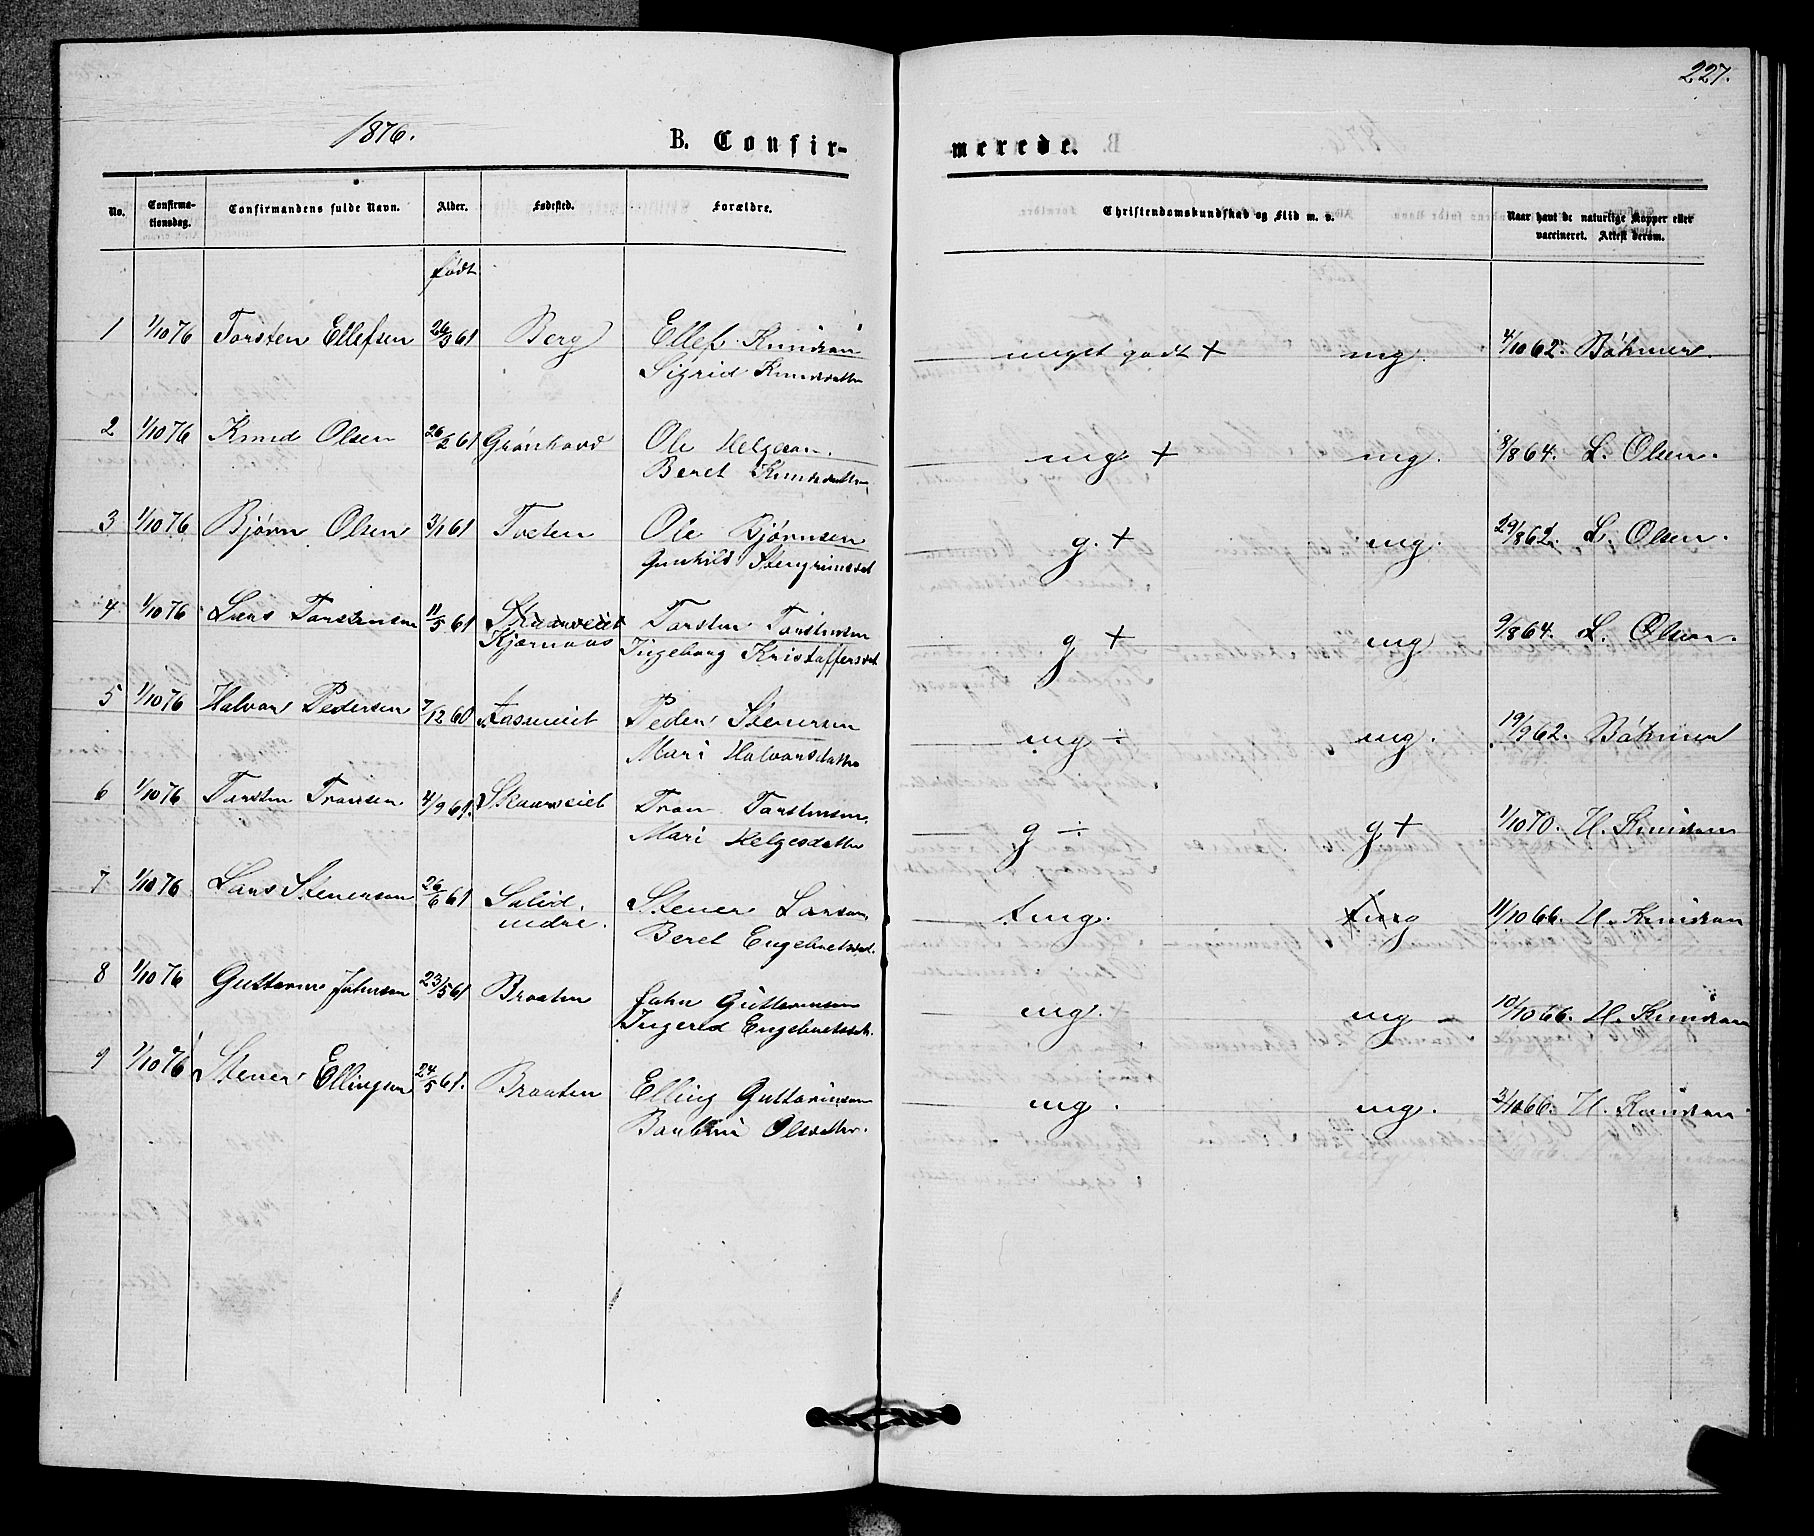 227.
1876.
B. Confir-
merede.
No.
Confirma-
tionsdag.
Confirmandens fulde Navn.
Alder.
Fødested.
Forældre.
Christendomskundskab og Flid m. v.
Naar havt de naturlige Kopper eller
vaccineret. Attest derom.
født
1 1/10 76 Torsten Ellefsen 26/3 61 Berg Ellef Knudsen
Sigrid Knudsdatter
meget godt + mg. 4/10 62. Böhmer
2 1/10 76 Knud Olsen 26/2 61 Grønhovd Ole Helgesen.
Beret Knudsdatter
mg. + mg. 8/8 64. L. Olsen.
3 1/10 76 Bjørn Olsen 3/1 61 Tveten Ole Bjørnsen
Gunhild Stengrimsdat
g. + mg. 29/8 62. L. Olsen.
4 1/10 76 Lars Torstensen 11/5 61 Skaarveiet Torsten Torstensen
Kjørnaas Ingeborg Kristoffersdat
g + mg 9/8 64. L. Olsen.
5 1/10 76 Halvor Pedersen 7/12 60 Aasveiet Peder Stenersen
Mari Halvorsdatter
mg ÷ mg. 19/9 62. Böhmer
6 1/10 76 Torsten Tronsen 4/9 61. Skaarveiet Tron Torstensen.
Mari Helgesdatter
g ÷ g + 1/10 70. H. Knudsen
7 1/10 76 Lars Stenersen 26/6 61 Stener Larsen
nedre. Beret Engebretsdat.
tmg. tmg 11/10 66. H. Knudsen
8 1/10 76 Guttorm Johnsen 23/5 61 Braaten John Guttormsen
Ingerid Engebretsdt.
mg. + mg – 10/10 66. H. Knudsen
9 1/10 76 Stener Ellingsen 24/5 61. Braaten Elling Guttormsen
Olsdatter.
mg. mg. 3/10 66. H. Knudsen